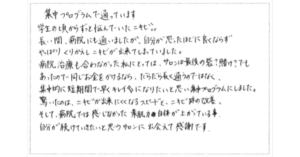 集中プログラムで通っています
学生の頃からずっと悩んでいたニキビ。
長い間、病院にも通いましたが、自分が思ったほどに良くならず
やっぱりくりかえしニキビが出来てしまっていました。
病院の治療も合わなかった私にとっては、サロンは最後の砦！賭け？でも
あったので同じお金をかけるなら、だらだら長く通うのではなく、
集中的に短期間で早くキレイ肌になりたいと思い集中プログラムにしました。
驚いたのは、ニキビが出来にくくなるスピードと、ニキビ跡の改善。
そして、病院では感じなかった素肌力が自体が上がっている事。
自分が続けていきたいと思うサロンに出会えて感謝です。